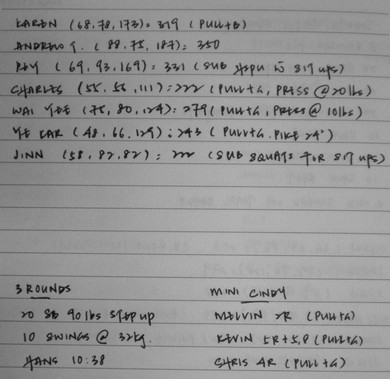 KAREN (68, 78, 173) = 319 (PULL+B)
ANDREW T. (88, 75, 187) = 350
REY (69, 93, 169) = 331 (SUB HSPU W SIT UPS)
CHARLES (55, 56, 111) = 222 (PULL+G, PRESS @ 20 lbs)
WAI YEE (75, 80, 124) = 279 (PULL+G, PRESS @ 10 lbs)
YE KAR (48, 66, 129) = 243 (PULL+G, PIKE 24")
JINN (58, 82, 82) = 222 (SUB SQUATS FOR SIT UPS)
3 ROUNDS
20 SB 90 lbs STEP UP
10 SWINGS @ 32 kg
HANS 10:38
MINI CINDY
MELVIN 7R (PULL+G)
KEVIN 5R+5,8 (PULL+G)
CHRIS 4R (PULL+G)